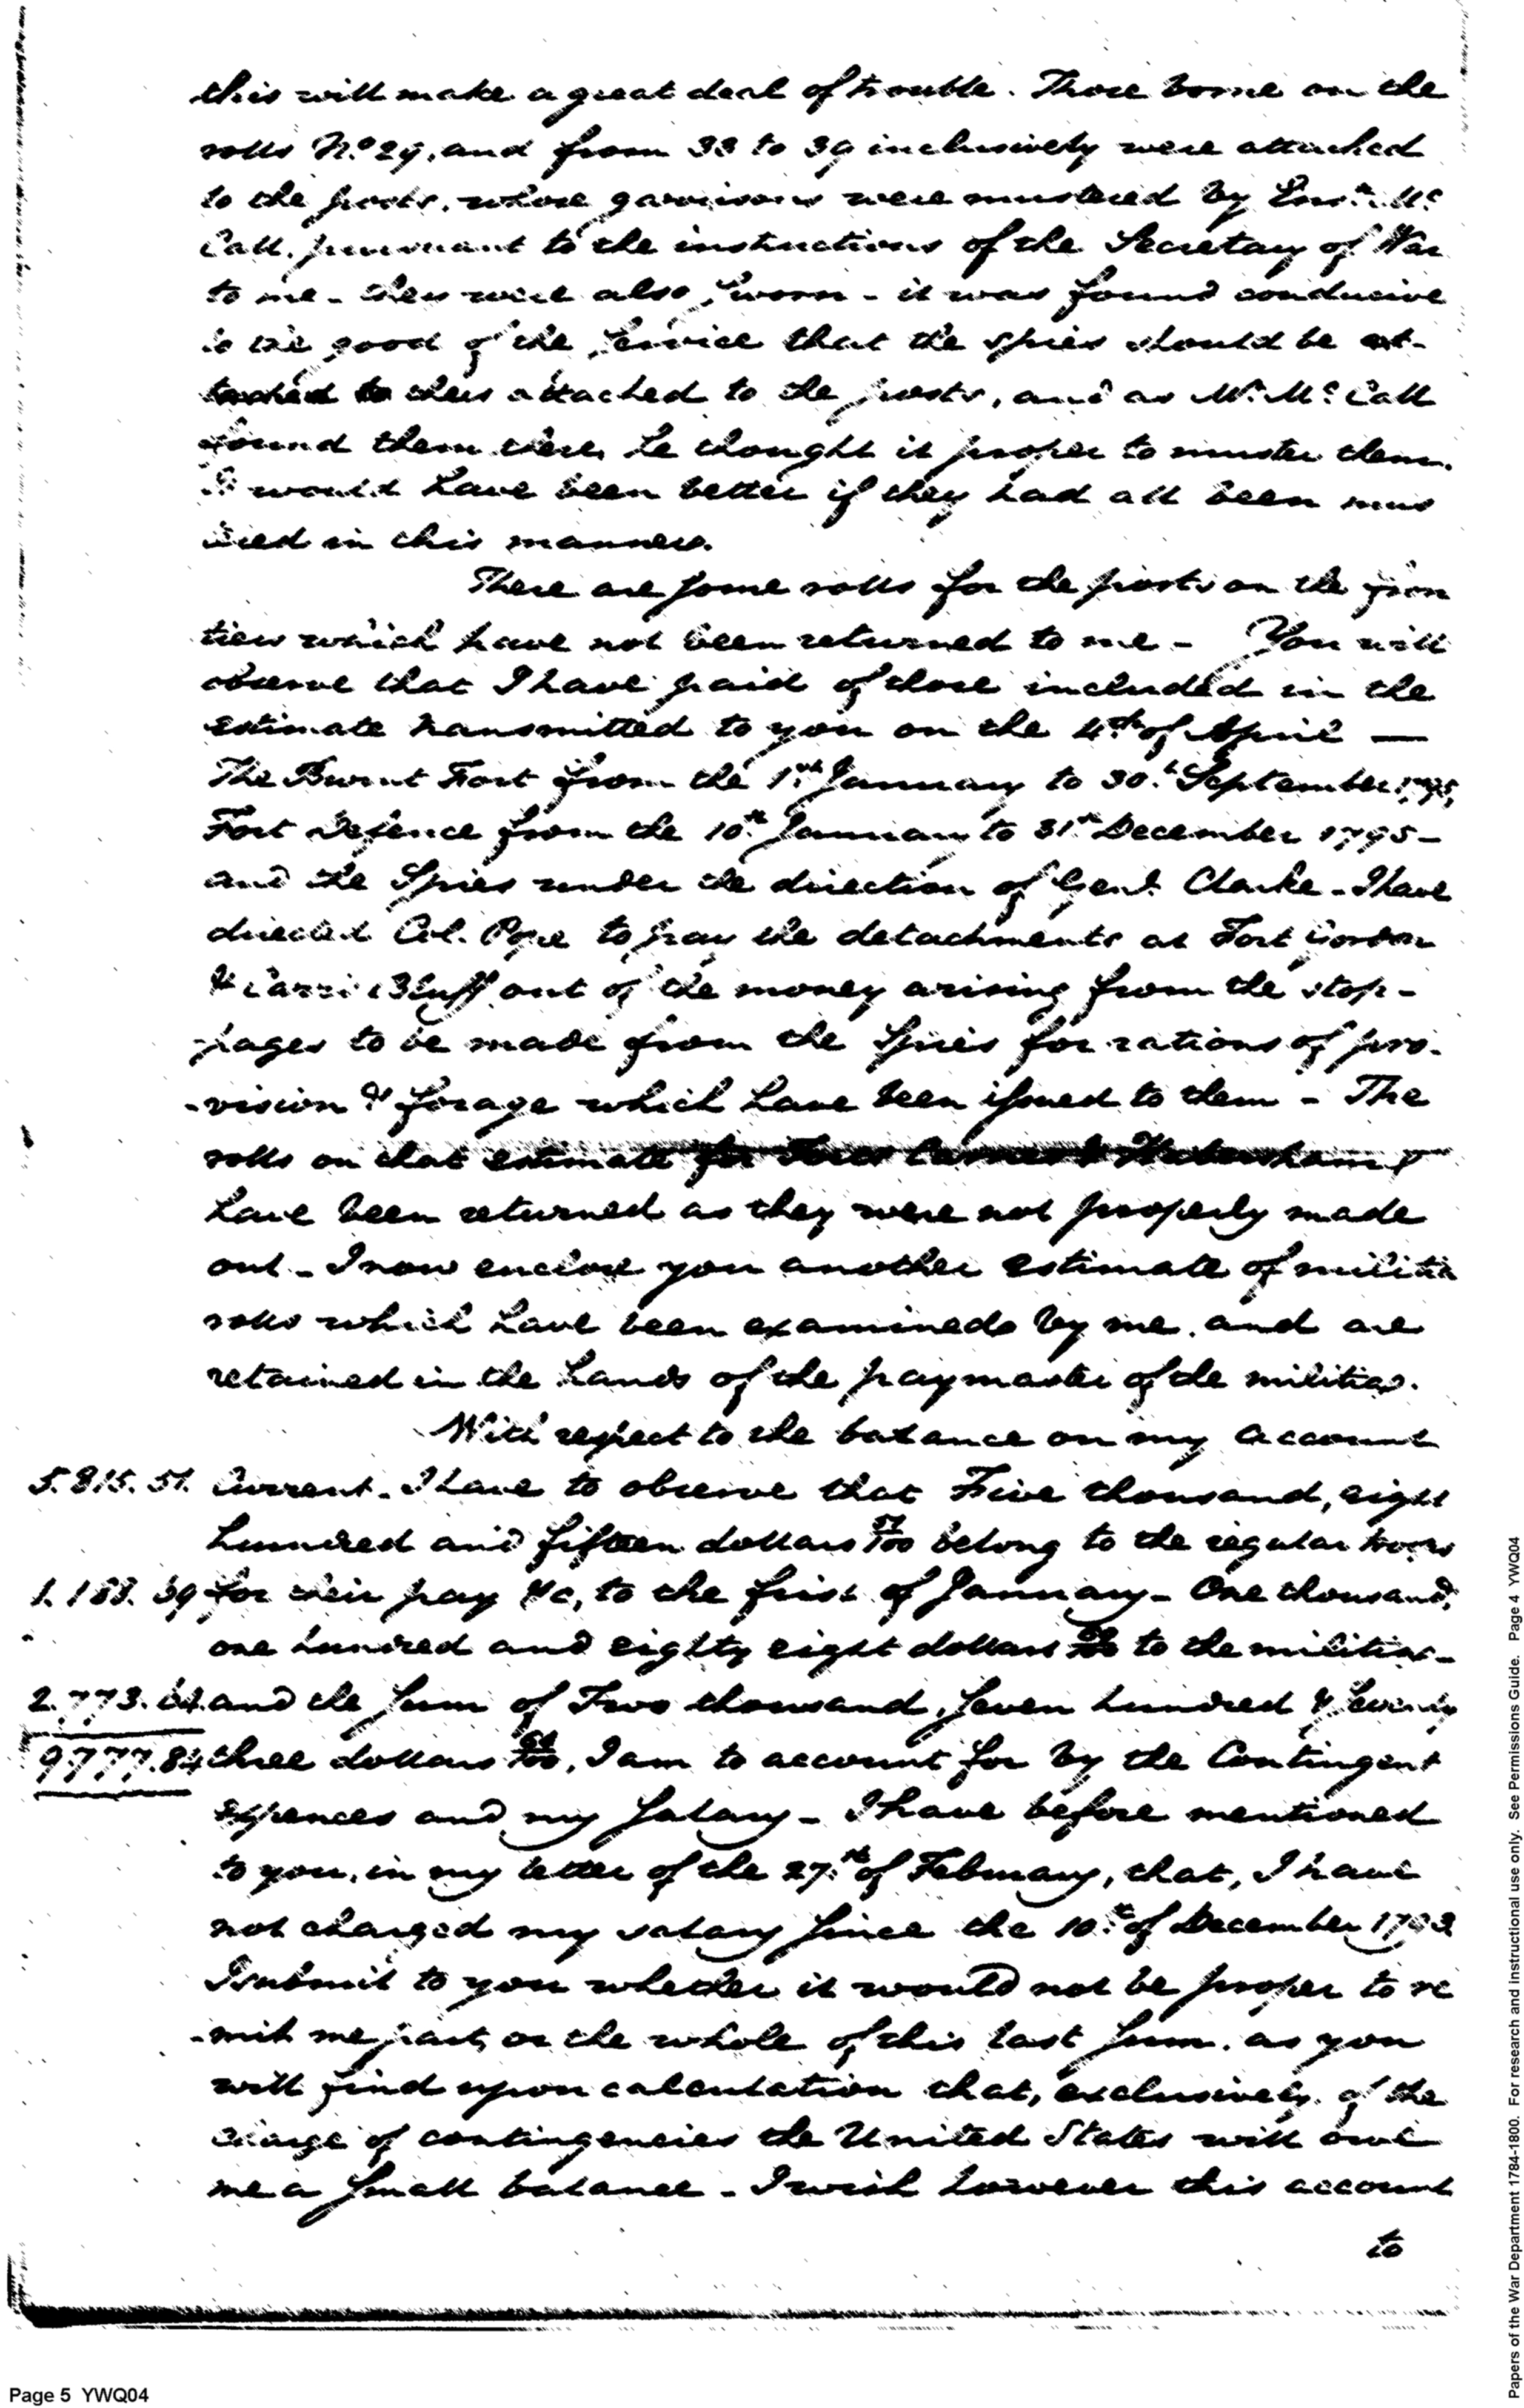 this will make a great deal of trouble. Those borne on the
rolls N.o 29, and from 33 to 39 inclusively were attached
to the posts, whose garrisons were mustered by Ens.n Mc
Call, pursuant to the instructions of the Secretary of War
to me - they were also sworn - it was found conducive
to the good of the service that the spies should be at-
tached to their attached to the posts, and as Mr. Mc Call
found them there, he thought it proper to muster them.
It would have been better if they had all been mus
tered in this manner.
There are some rolls for the posts on the fron
tier which have not been returned to me - You will
observe that I have paid of those included in the
estimate transmitted to you on the 4th of April —
The Burnt Fort from the 1st January to 30th September 1795,
Fort Defence from the 10th January to 31st December 1795 -
and the Spies under the direction of Genl. Clarke - I have
directed Col. Pope to pay the detachments at Fort Gordon
& Carr's Bluff out of the money arising from the stop-
pages to be made from the Spies for rations of pro-
-vision & forage which have been issued to them - The
rolls on that estimate for
have been returned as they were not properly made
out - I now enclose you another estimate of militia
rolls which have been examined by me, and are
retained in the hands of the paymaster of the militia.
With respect to the balance on my account
5.815.51. Current. I have to observe that Five thousand, eight
hundred and fifteen dollars 51/100 belong to the regular troops
1.188.69 for their pay &c, to the first of January - One thousand,
one hundred and eighty eight dollars 69/100 to the militia -
2.773.64 and the sum of Two thousand, seven hundred & seventy
9777.84 three dollars 64/100, I am to account for by the Contingent
expences and my salary - I have before mentioned
to you, in my letter of the 27th of February, that, I have
not charged my salary since the 10th of December 1793
I submit to you whether it would not be proper to re
-mit me part, or the whole of this last sum, as you
will find upon calculation that, exclusively, of the
charge of contingencies the United States will owe
me a small balance - I wish however this account
to
Page 5 YWQ04
Papers of the War Department 1784-1800. For research and instructional use only. See Permissions Guide. Page 4 YWQ04